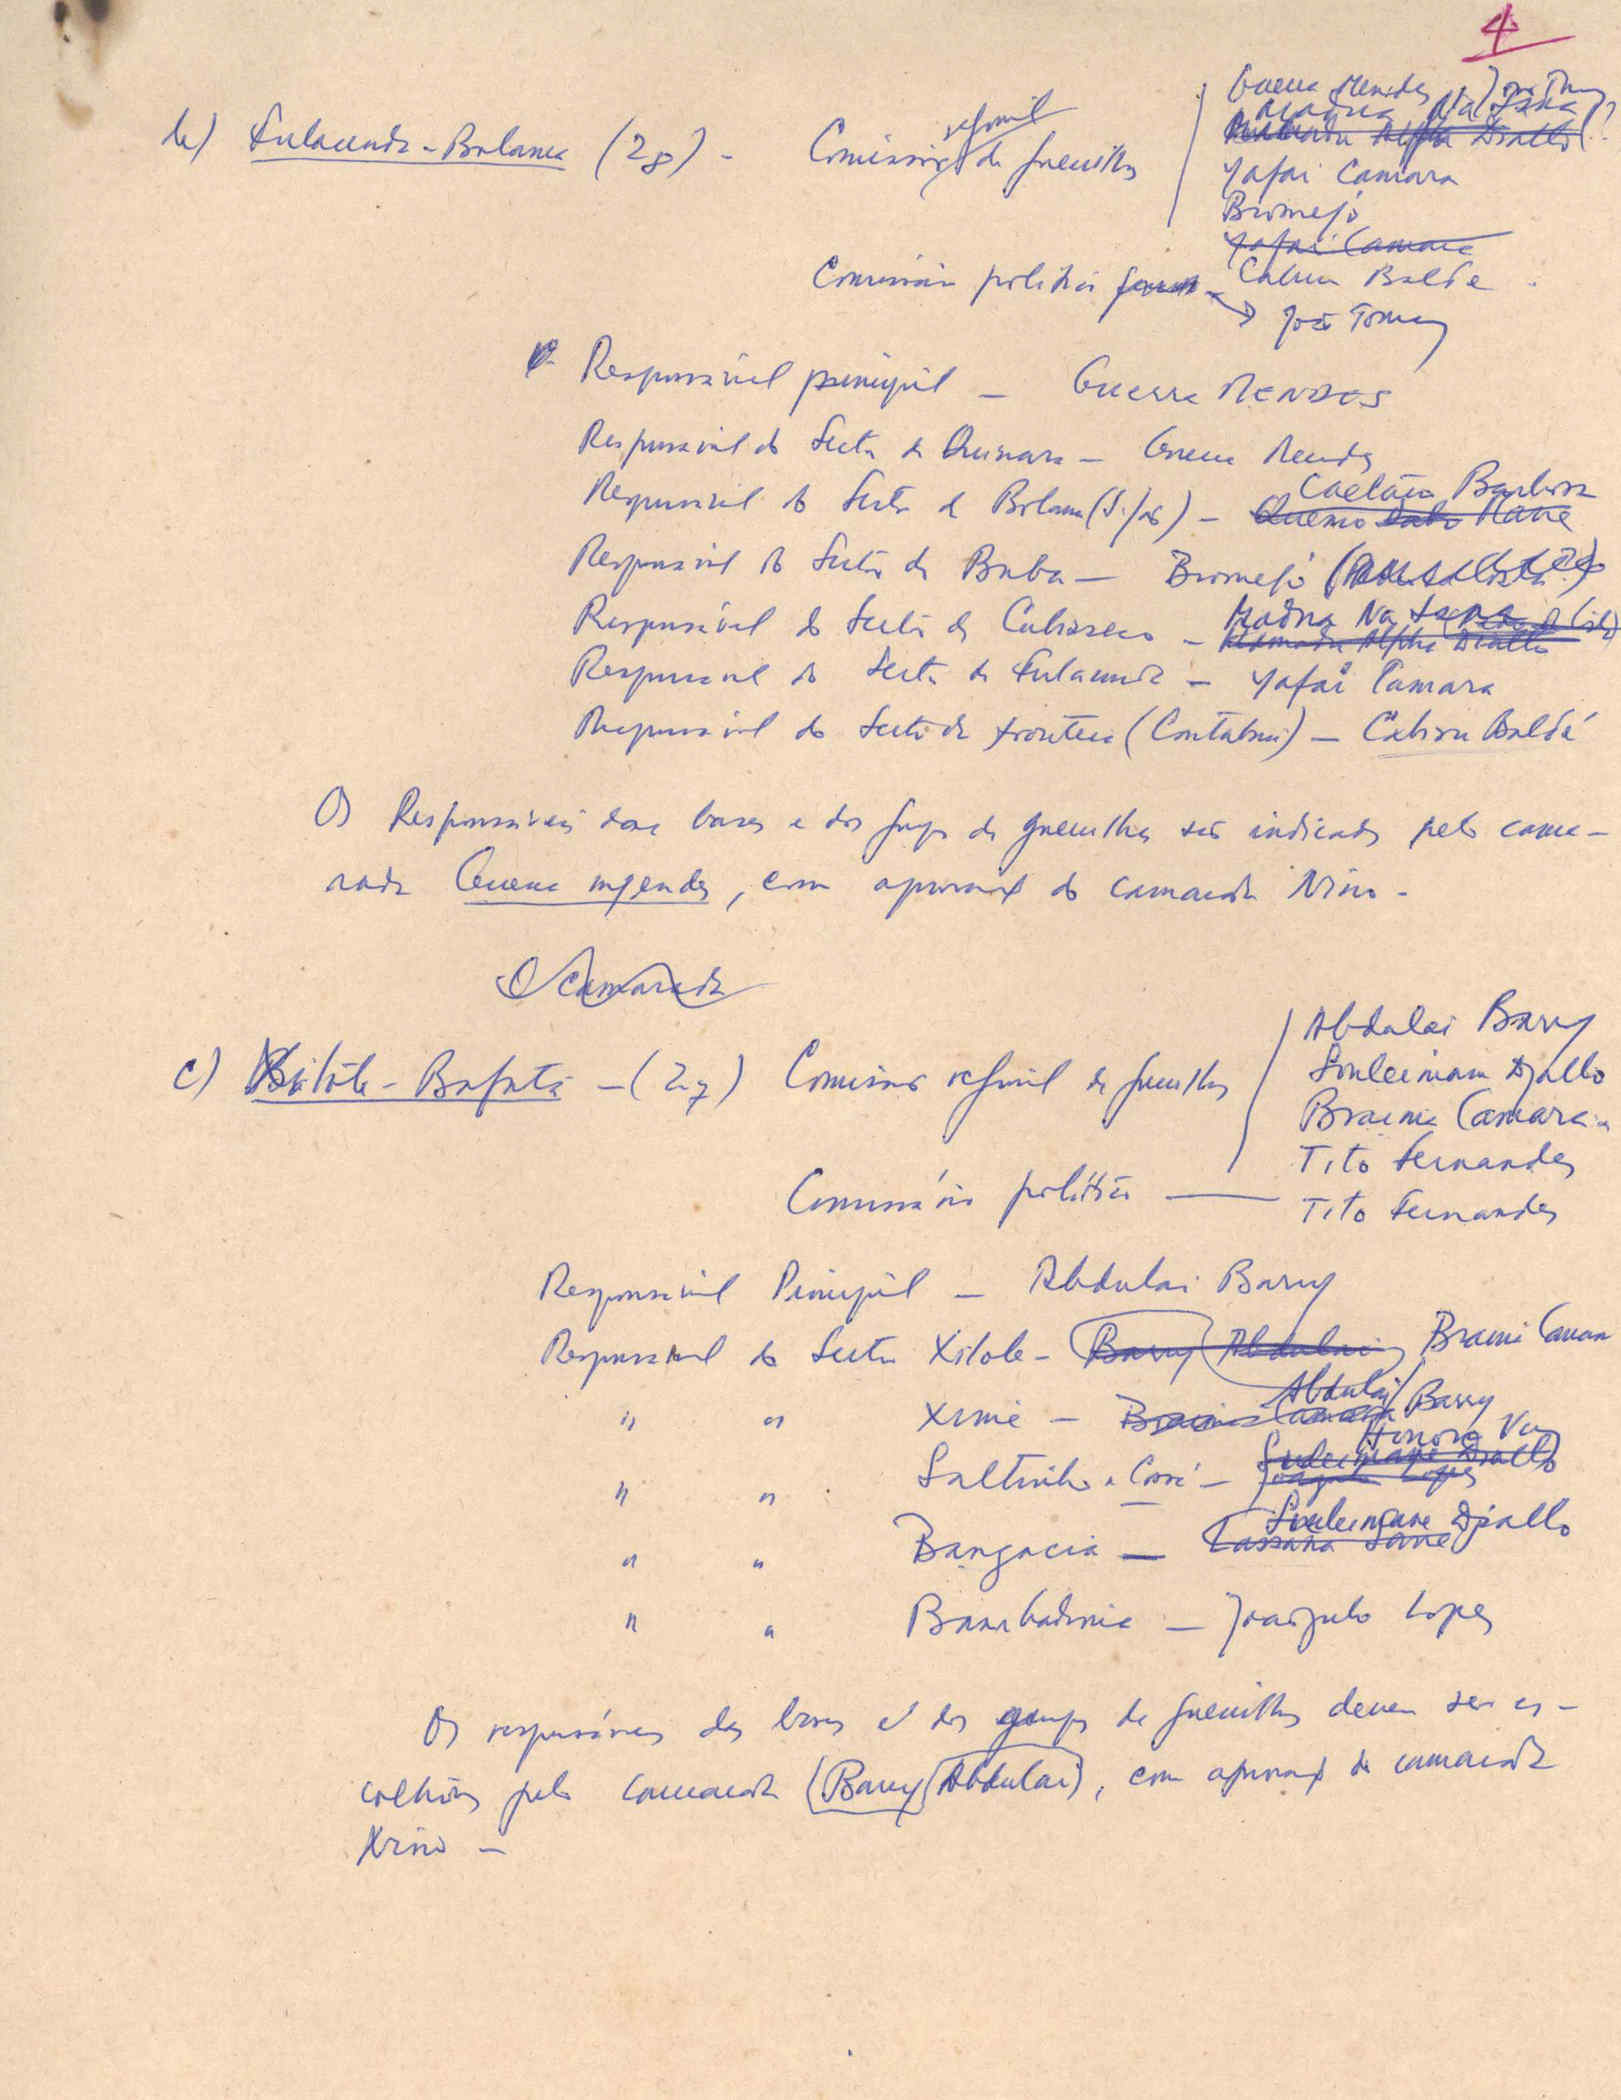 4
b) Fulacunda - Bolama (Z8) - Comissão regional de guerrilhas
Guerra Mendes
Madna Na
Mamadu Alpha Djallo
Yafai Camara
Bromejó
Yafai Camara
Comissário político - Cabiru Baldé
João Tomaz
Responsável principal - Guerra MENDES
Responsável do Sector de Quinara - Guerra Mendes
Caetano Barbosa
Responsável do Sector de Bolama (S. João) - Quemo Mané
Responsável do Sector de Buba - Bromejó
Madna Na
Responsável do Sector de Cubisseco - Mamadu Alpha Djallo
Responsável do Sector de Fulacunda - Yafai Camara
Responsável do Sector da fronteira (Contabani) - Cabiru Baldé
Os Responsáveis das bases e dos grupos de guerrilhas são indicados pelo cama-
rada Guerra Mendes, com aprovação do camarada Nino -
O camarada
c) Xitole - Bafatá - (Z7) Comissão regional de guerrilhas
Abdulai Barry
Souleimane Djallo
Braima Camara
Tito Fernandes
Comissário político — Tito Fernandes
Responsável Principal - Abdulai Barry
Responsável do Sector Xitole - Barry Abdulai Braima Camara
" " Xime - Braima Camara Abdulai Barry
Honório Vaz
" " Saltinho e Corá - Souleimane Djallo Lopes
Souleimane Djallo
" " Bangacia - Lassana Sané
" " Bambadinca - Joãozinho Lopes
Os responsáveis das bases e dos grupos de guerrilhas devem ser es-
colhidos pelo camarada (Barry Abdulai), com aprovação do camarada
Nino -